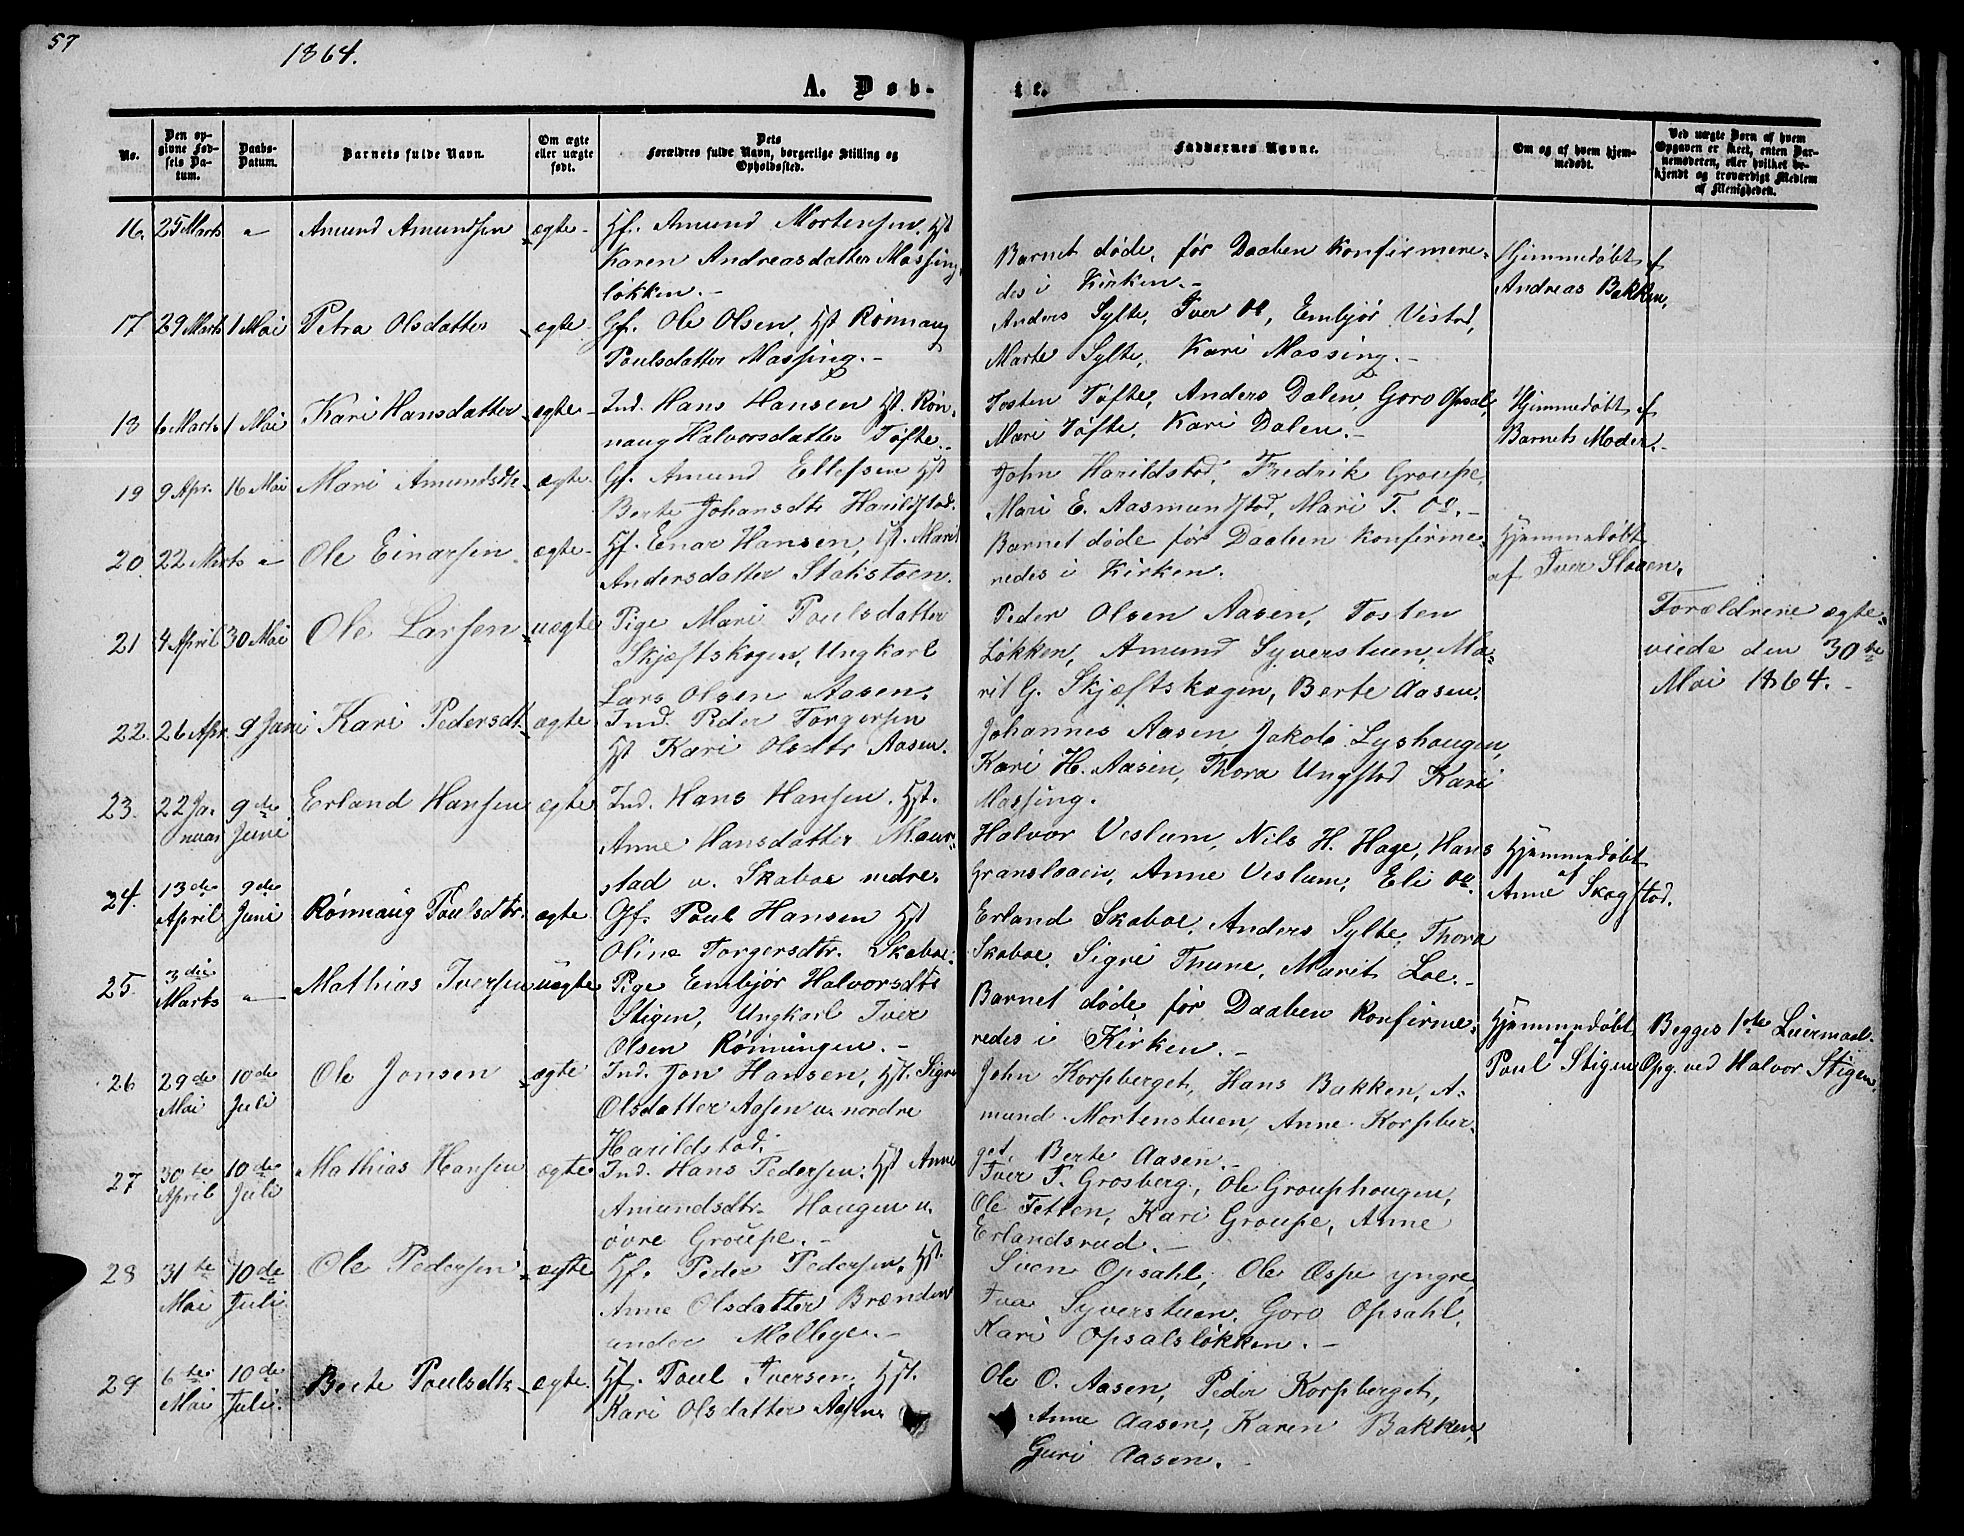 57
1864.
A. Døb-
te.
No.
Den op-
givne Fød-
sels Da-
tum.
Daabs-
Datum.
Barnets fulde Navn.
Om ægte
eller uægte
født.
Dets
Forældres fulde Navn, borgerlige Stilling og
Opholdssted.
Faddernes Navne.
Om og af hvem hjem-
medøbt.
Ved uægte Børn af hvem
Opgaven er skeet, enten Bar-
nemoderen, eller hvilket be-
kjendt og troværdigt Medlem
af Menigheden.
16. 25 Marts " Amund Amundsen ægte Gf. Amund Mortensen. Hst
Karen Andreasdatter Massing-
løkken.
Barnet døde, før Daaben konfirmere-
des i Kirken.
Hjemmedøbt af
Andreas Bakken.
17 29 Marts 1 Mai Petra Olsdatter ægte Gf. Ole Olsen, Hst Rønnaug
Poulsdatter Massing.
Anders Sylte, Iver Oe, Embjør Vistad,
Marte Sylte, Kari Massing.
18 6 Marts 1 Mai Kari Hansdatter ægte Ind. Hans Hansen Hst. Røn-
naug Halvorsdatter Tøfte.
Tosten Tøfte, Anders Dalen, Goro Opsal,
Mari Tøfte, Kari Dalen.
Hjemmedøbt af
Barnets Moder.
19 9 Apr. 16 Mai Mari Amundsdtr ægte Gf. Amund Ellefsen Hst
Berte Johansdtr Harildstad.
John Harildstad, Fredrik Groupe,
Mari E. Aasmundstad, Mari T. Oe.
20. 22 Marts " Ole Einarsen ægte Hf. Enar Hansen, Hst. Marit
Andersdatter Stakstoen.
Barnet døde før Daaben konfirme-
redes i Kirken.
Hjemmedøbt
af Iver Slaaen.
21 4 April 30 Mai Ole Larsen uægte Pige Mari Poulsdatter
Skjæftskogen, Ungkarl
Lars Olsen Aasen.
Peder Olsen Aasen, Tosten
Løkken, Amund Syverstuen, Ma-
rit G. Skjæftskogen, Berte Aasen.
Forældrene ægte-
viede den 30te
Mai 1864.
22. 26 Apr. 9 Juni Kari Pedersdtr. ægte Ind. Peder Torgersen
Hst Kari Olsdtr Aasen.
Johannes Aasen, Jakob Lyshaugen,
Kari H. Aasen, Thora Ungstad Kari
Massing.
23. 22 Ja-
nuar 9de
Juni Erland Hansen ægte Ind. Hans Hansen. Hst.
Anne Hansdatter Maur-
stad u. Skaboe nedre.
Halvor Veslum, Nils H. Hage, Hans
Granslaaen, Anne Veslum, Eli Oe.
Hjemmedøbt
af
Anne Skogstad.
24. 13de
April 9de
Juni Rønnaug Poulsdtr. ægte Gf. Poul Hansen Hst
Oline Torgersdtr. Skaboe.
Erland Skaboe, Anders Sylte, Thora
Skaboe, Sigri Thune, Marit Loe.
25. 3die
Marts " Mathias Iversen uægte Pige Embjør Halvorsdtr
Stigen, Ungkarl Iver
Olsen Rønningen.
Barnet døde, før Daaben konfirme-
redes i Kirken.
Hjemmedøbt
af
Poul Stigen
Begges 1ste Leiermaal.
Opg. ved Halvor Stigen.
26 29de
Mai 10de
Juli Ole Jonsen ægte Ind. Jon Hansen, Hst. Sigri
Olsdatter Aasen u. nordre
Harildstad.
John Korpberget, Hans Bakken, A-
mund Mortenstuen, Anne Korpber-
get, Berte Aasen.
27 30te
April 10de
Juli Mathias Hansen ægte Ind. Hans Pedersen. Hst Anne
Amundsdtr. Haugen u.
øvre Groupe.
Iver P. Grosberg, Ole Grouphougen,
Ole Tetten, Kari Groupe, Anne
Erlandsrud.
28 31te
Mai 10de
Juli. Ole Pedersen ægte Hf. Peder Pedersen. Hst.
Anne Olsdatter Brænden
under Mellege.
Sven Opsahl, Ole Espe yngre,
Syverstuen, Goro Opsahl,
Kari Opsalsløkken.
29 6te
Mai 10de
Juli. Berte Poulsdtr ægte Hf. Poul Iversen, Hst.
Kari Olsdatter Aasen.
Ole O. Aasen, Peder Korpberget,
Anne Aasen, Karen Bakken,
Guri Aasen.